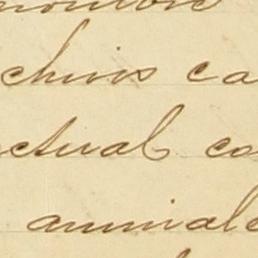 chins ca
ctual co
animale